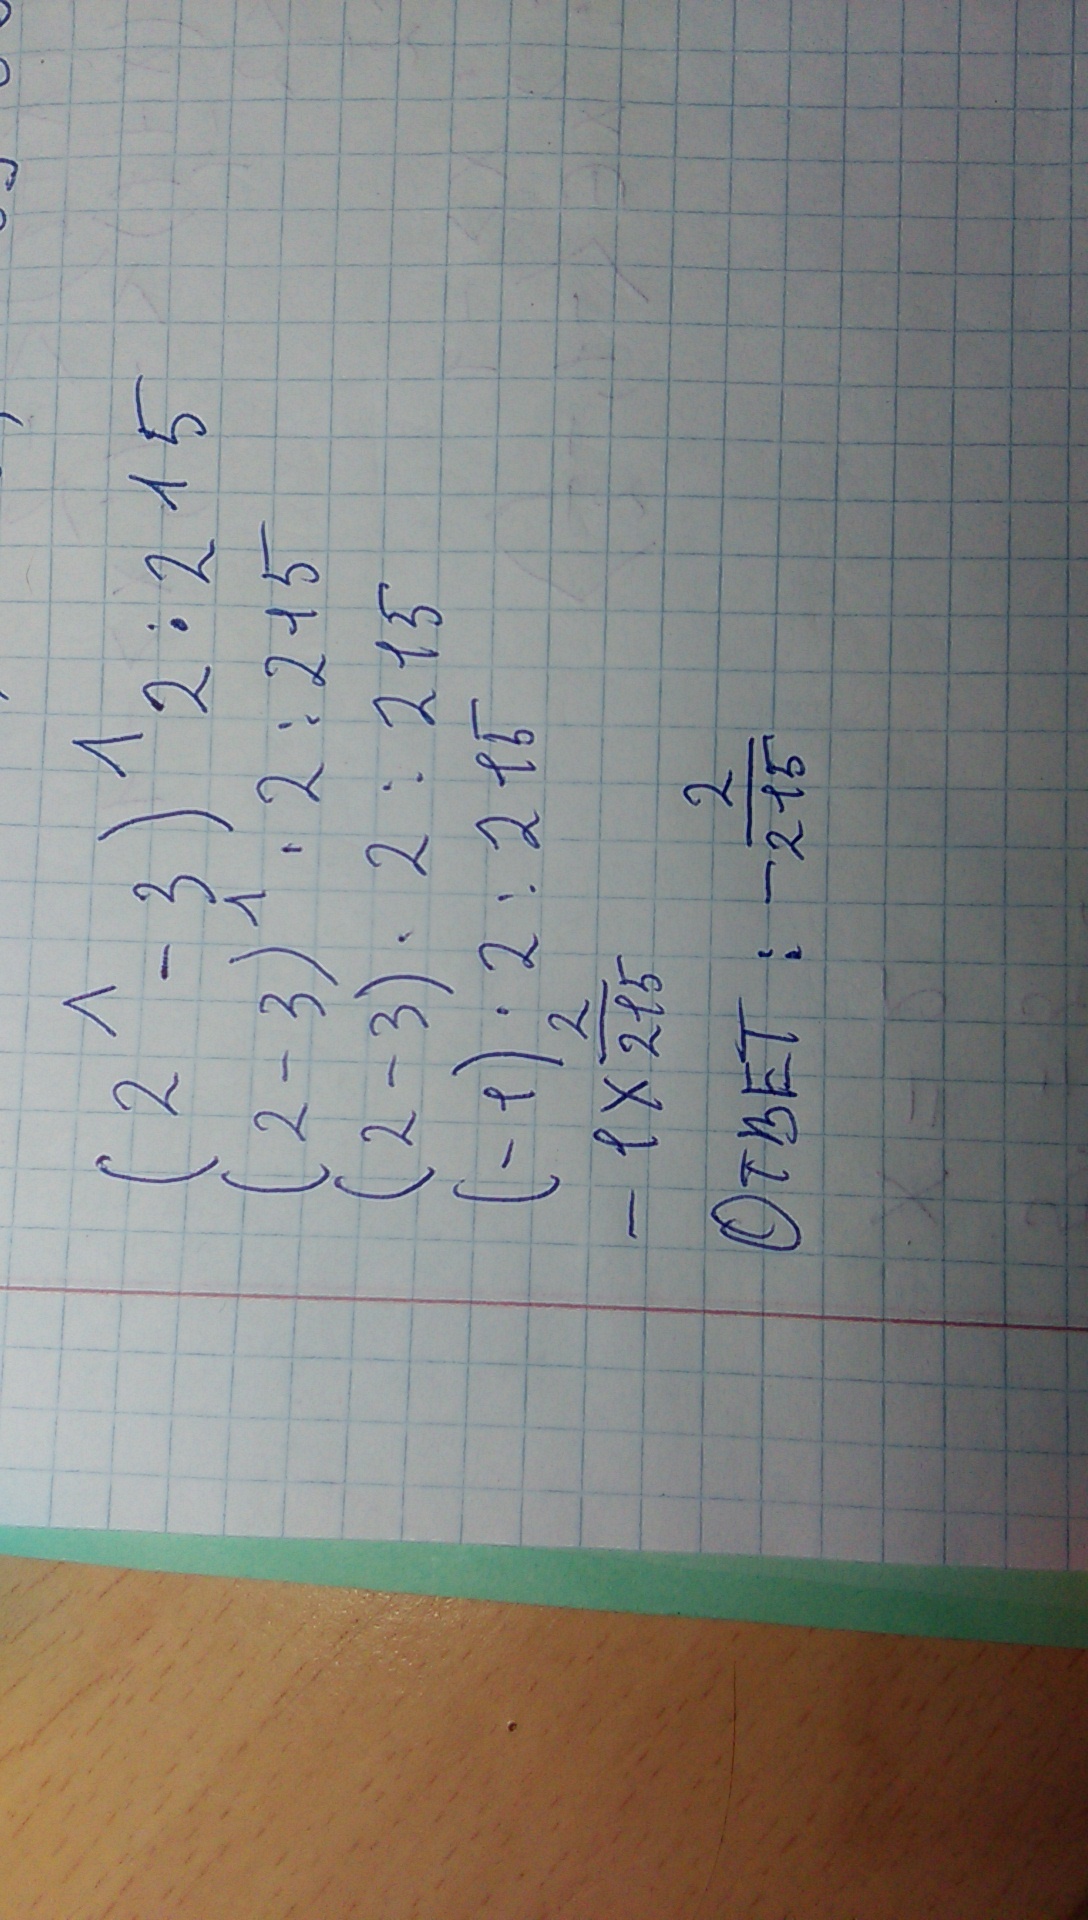 (2^1 -3)^1 2:215
(2-3)^1 · 2:215
(2-3) · 2:215
(-1) · 2:215
-1 x 2/215
ОТВЕТ: - 2/215